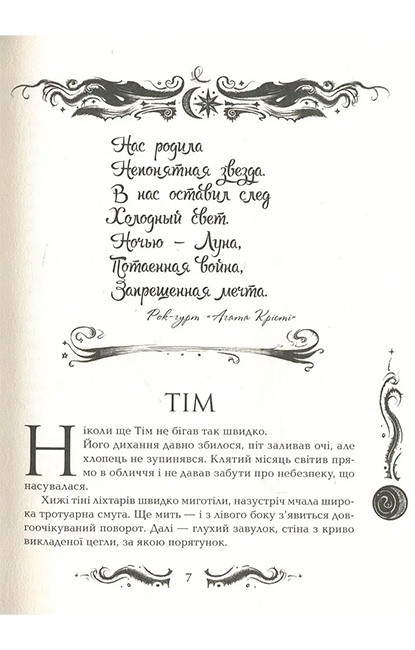 Нас родила
Непонятная звезда.
В нас оставил след
Холодный свет.
Ночью – Луна,
Потаенная война,
Запрещенная мечта.
Рок-гурт «Агата Крісті»
ТІМ
Ніколи ще Тім не бігав так швидко.
Його дихання давно збилося, піт заливав очі, але
хлопець не зупинявся. Клятий місяць світив пря-
мо в обличчя і не давав забути про небезпеку, що
насувалася.
Хижі тіні ліхтарів швидко миготіли, назустріч мчала широ-
ка тротуарна смуга. Ще мить — і з лівого боку з’явиться дов-
гоочікуваний поворот. Далі — глухий завулок, стіна з криво
викладеної цегли, за якою порятунок.
7